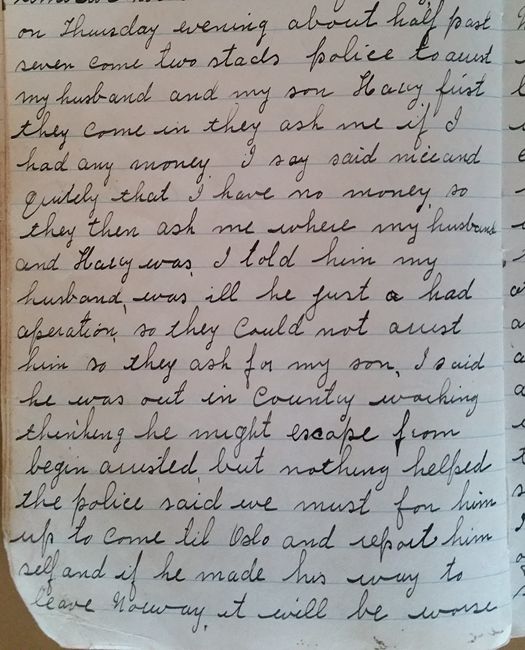 on Thursday evening about half past
seven come two stads police to arrest
my husband and my son Harry first
they come in they ask me if I
had any money I say said nice and
quitely that I have no money, so
they then ask me where my husband
and Harry was, I told him my
husband, was ill he just a had
aperation, so they could not arrest
him so they ask for my son, I said
he was out in Country working
thenking he might escape from
begin arrested, but nothing helped
the police said we must fon him
up to come til Oslo and report him
self and if he made his way to
leave Norway, it will be worse